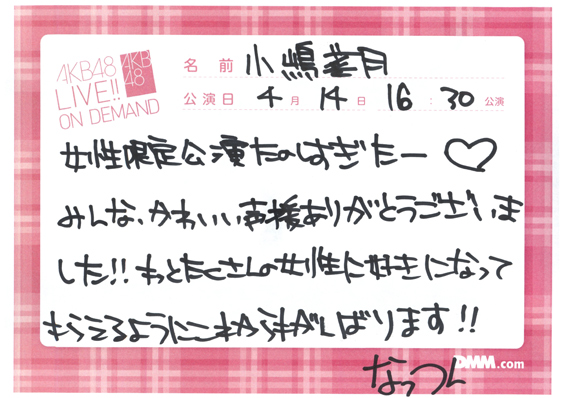 AKB48
LIVE!!
ON DEMAND
AKB
48
名前 小嶋菜月
公演日 4月14日 16:30公演
女性限定公演たのしすぎたー♡
みんな、かわいい声援ありがとうございま
した!! もっとたくさんの女性に好きになって
もらえるようにこれからもがんばります!!
なっつん
DMM.com